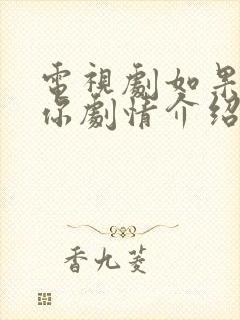 電視劇如果
你劇情介紹
香九菱